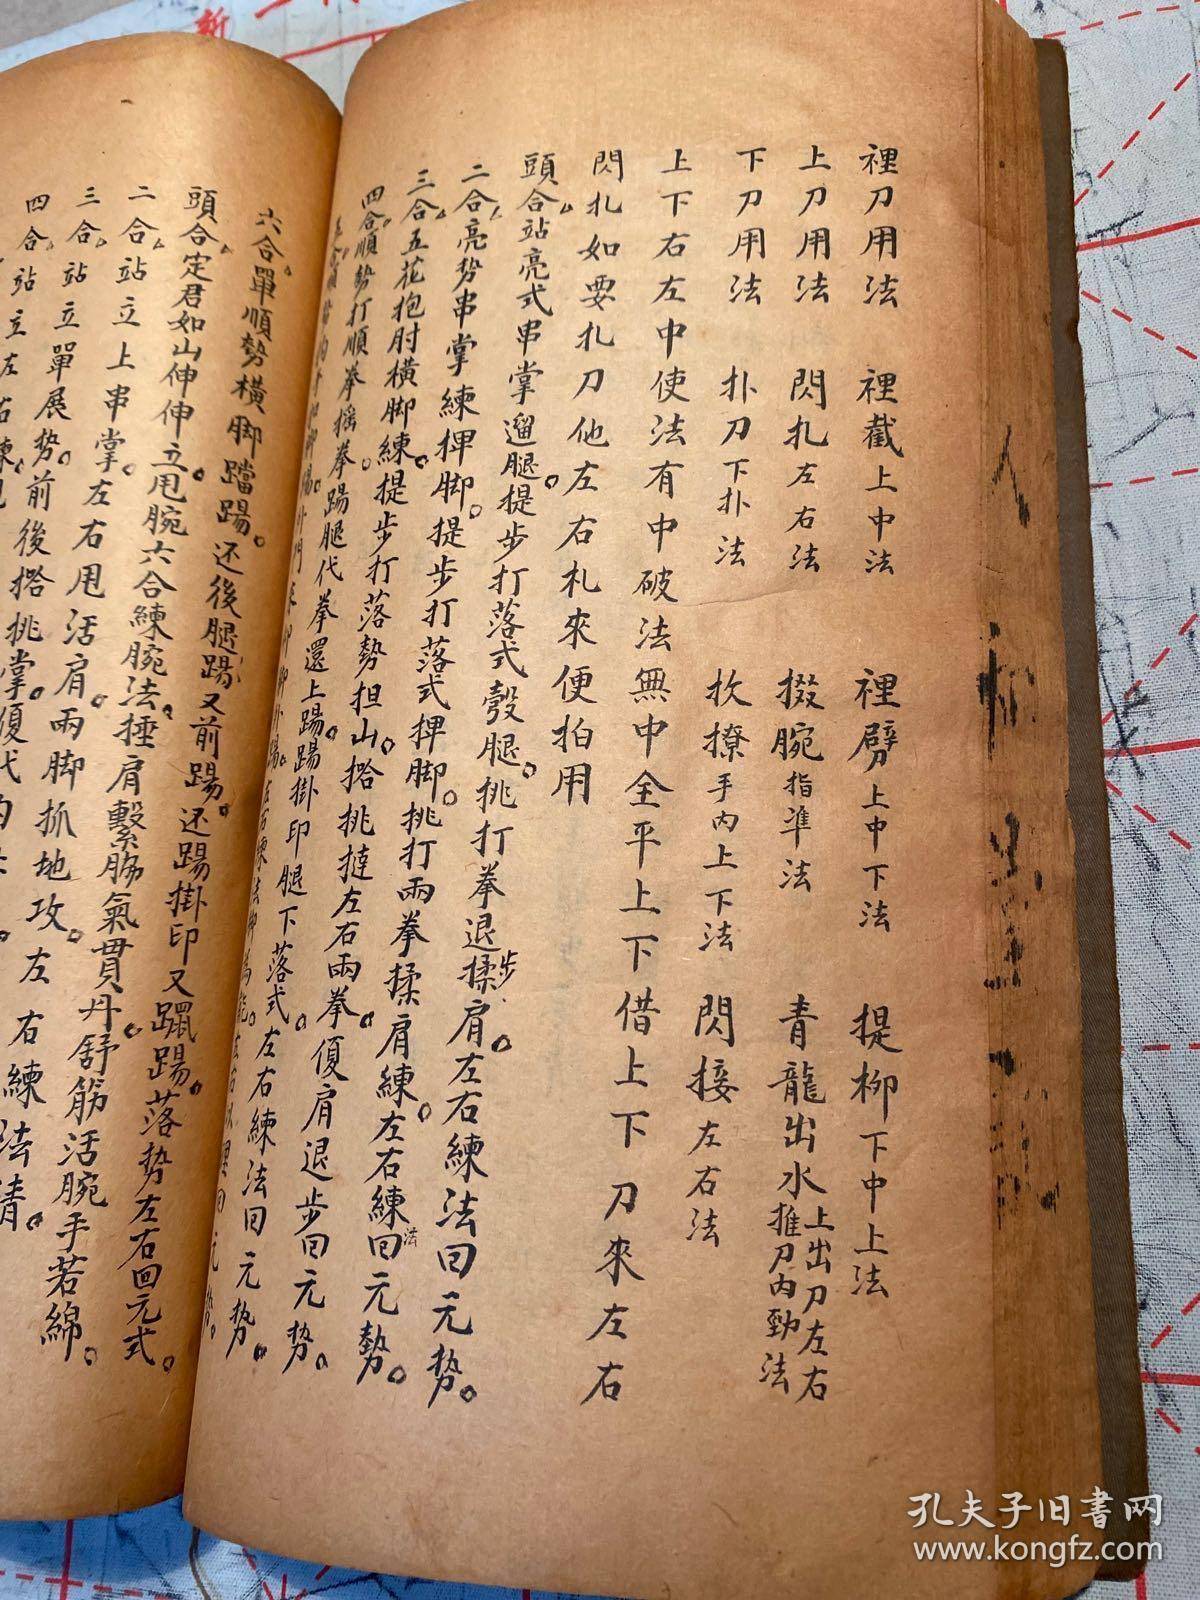 裡刀用法　裡截上中法　裡劈上中下法　提柳下中上法
上刀用法　閃扎左右法　掇腕指準法　青龍出水上出刀左右推刀内勁法
下刀用法　扑刀下扑法　撩手内上下法　閃接左右法
上下右左中使法有中破法無中全平上下借上下刀來左右
閃扎如要扎刀他左右札來便拍用
頭合站亮式串掌遛腿。提步打落式彀腿。挑打拳退步揉肩。左右練法回元势。
二合亮势串掌練捭脚。提步打落式捭脚。挑打兩拳揉肩練。左右練法回元勢。
三合五花抱肘橫脚練。提步打落勢担山。搭挑撻左右兩拳。傻肩退步回元势。
四合順勢打順拳摇拳。踢腿代拳還上踢。踢掛印腿下落式。左右練法回元势。
六合單順勢橫脚蹬踢。还後腿踢又前踢。还踢掛印又躧踢。落势左右回元式。
頭合定君如山伸伸立。甩腕六合練腕法。捶肩繫胁氣貫丹。舒筋活腕手若綿。
二合站立上串掌。左右甩活肩。兩脚抓地攻。左右練法清。
三合站立單展势。前後搭挑掌。
四合站立左右練
新
孔夫子旧书网
www.kongfz.com